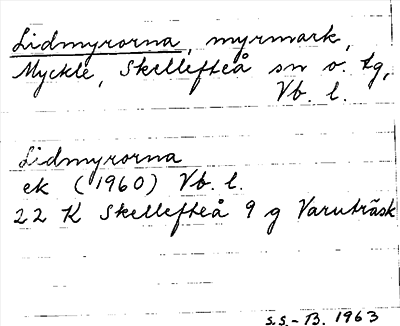 Lidmyrorna, myrmark,
Myckle, Skellefteå sn o. tg,
Vb. l.
Lidmyrorna
ek (1960) Vb. l.
22 K Skellefteå 9 g Varuträsk
S.S.-B. 1963